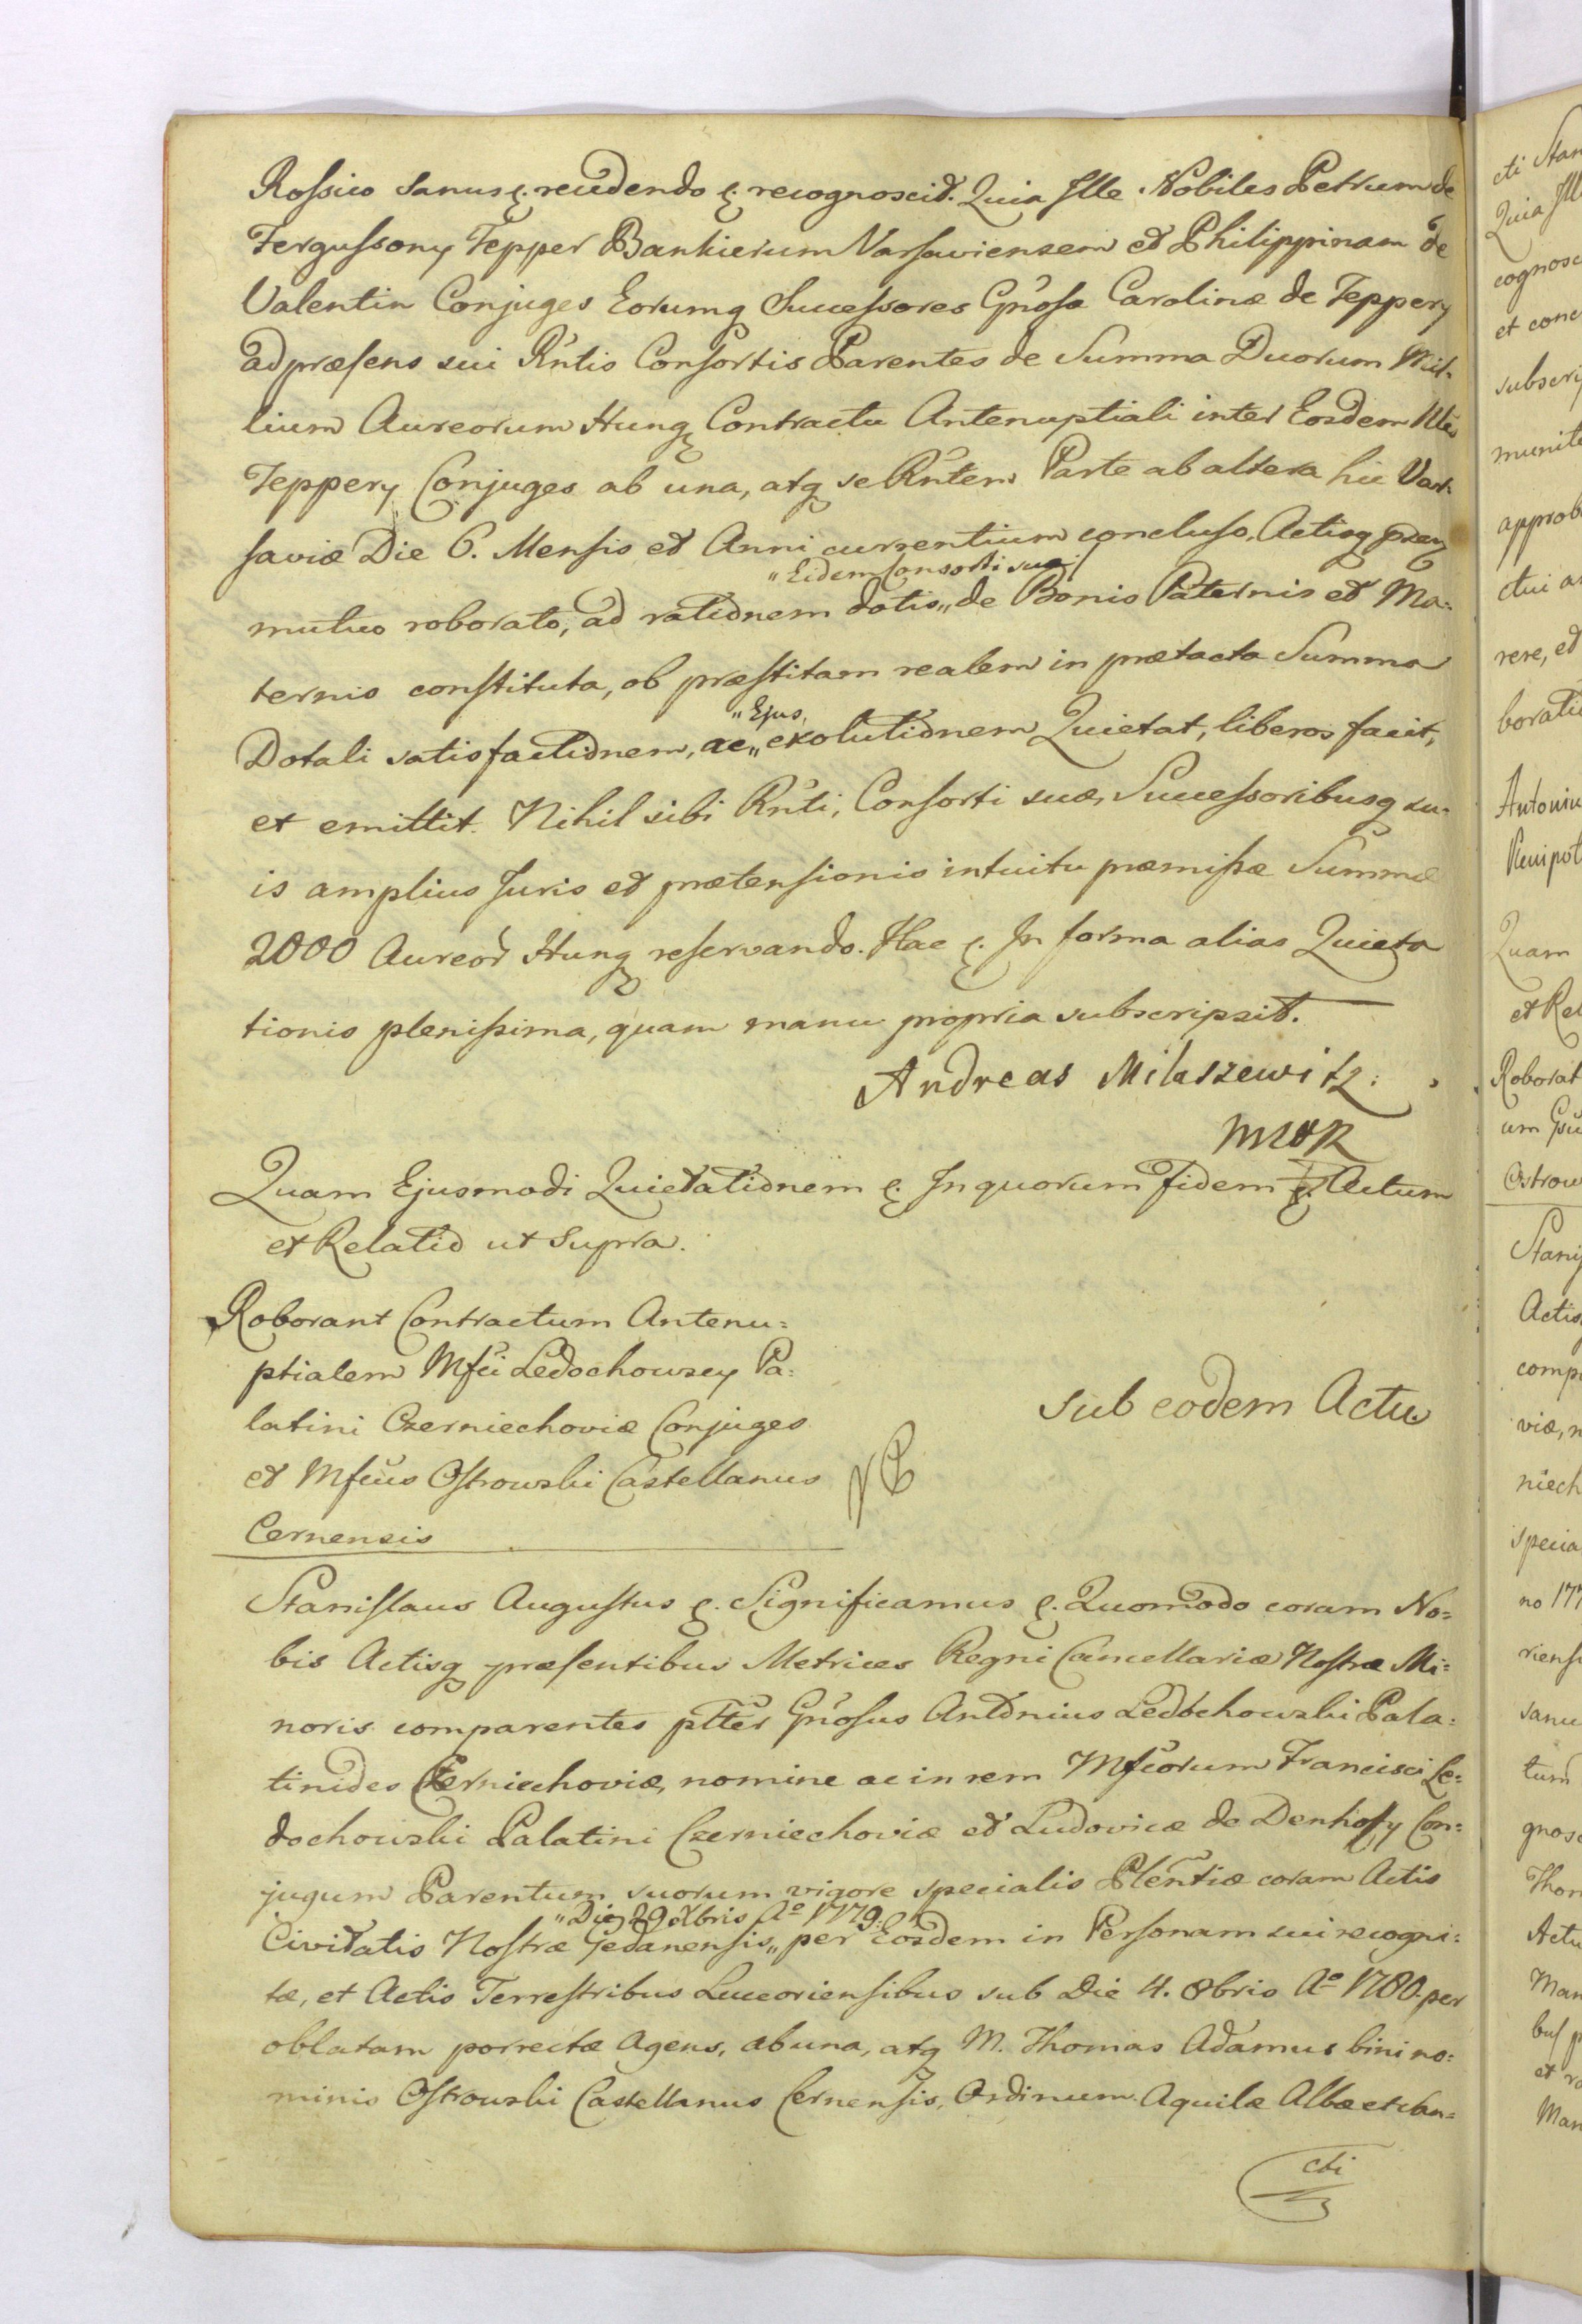 Rossico Sanus ꝛ. recedendo ꝛ. recognoscit. Quia Ille Nobiles Petrum de
Fergussony Tepper Bankierum Varsaviensem et Philippinam de
Valentin Conjuges Eorumq Successores Gnosa Carolinæ de Teppery
ad præsens sui Rntis Consortis Parentes de Summa Duorum Mil-
lium Aureorum Hung Contractu Antenuptiali inter Eosdem Nles
Teppery Conjuges ab una, atq se Rntem Parte ab altera hic Var-
saviæ Die 6. Mensis et Anni currentium concluso, Actisq
„Eidem Consorti suæ
mutuo roborato, ad rationem dotis„ de Bonis Paternis et Ma=
ternis constituta, ob præstitam realem in prætacta Summa
„Ejus
Dotali satisfactionem, ac„ exolutionem Quietat, liberos facit,
et emittit. Nihil sibi Rnti, Consorti suæ, Successoribusq su=
is amplius Juris et prætensionis intuitu præmissæ Summæ
2000 Aureor Hung reservando. Hac ꝛ. In forma alias Quieta
tionis plenissima, quam manu propria subscripsit.
Andreas Milaszewitz
Quam Ejusmodi Quietationem ꝛ. In quorum fidem ꝛ. Actum
et Relatio ut Supra.
Roborant Contractum Antenu=
ptialem Mfci Ledochowscy Pa=
latini Czerniechoviæ Conjuges
et Mfcus Ostrowski Castellanus
Cernensis
Sub eodem Actu
Stanislaus Augustus ꝛ. Significamus ꝛ. Quomodo coram No=
bis Actisq præsentibus Metrices Regni Cancellariæ Nostræ Mi=
noris comparentes pltter Gnosus Antonius Ledochowski Pala=
tinides Czerniechoviæ, nomine ac in rem Mfcorum Francisci Le=
dochowski Palatini Czerniechoviæ et Ludovicæ de Denhoffy Con=
jugum Parentum suorum vigore specialis Plentiæ coram Actis
„Die 29 Xbris Aº 1779.
Civitatis Nostræ Gedanensis„ per Eosdem in Personam sui recogni=
tæ, et Actis Terrestribus Luceoriensibus sub Die 4. 8bris Aº 1780. per
oblatam porrectæ Agens, ab una, atq M. Thomas Adamus bini no=
minis Ostrowski Castellanus Cernensis, Ordinum Aquilæ Albæ et San=
cti
cti Stan
Quia Ill
cognosc
et conc
subscri
munit
approb
ctui a
rere, et
borati
Antoniu
Plenipot
Quam
et Rel
Roborat
um
Ostrow
Stani
Actis
comp
viæ, n
niech
specia
no 177
riensi
sanu
tum
gnosc
Thom
Actu
Man
bus p
et ro
Man